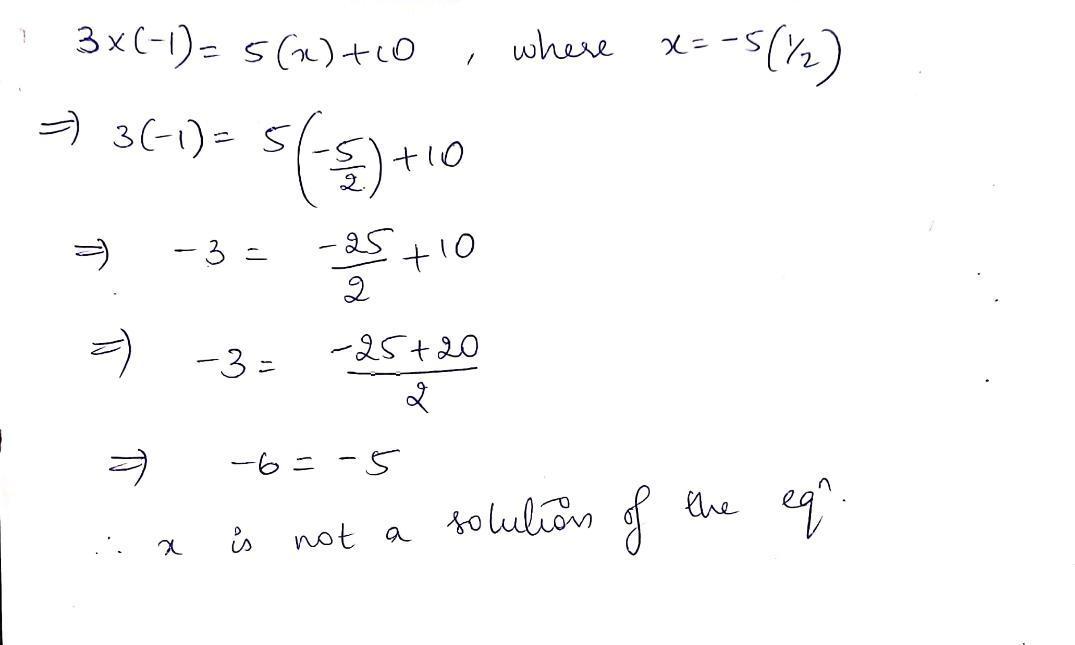 3×(-1) = 5(x)+10 , where x = -5(1/2)
⇒ 3(-1) = 5(-5/2)+10
⇒ -3 = -25/2 +10
⇒ -3 = (-25+20)/2
⇒ -6 = -5
∴ x is not a solution of the eqⁿ.